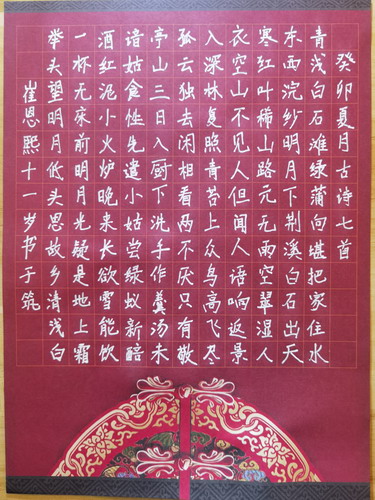 癸卯夏月古诗七首
青浅白石滩绿蒲向堪把家住水
东西浣纱明月下荆溪白石出天
寒红叶稀山路元无雨空翠湿人
衣空山不见人但闻人语响返景
入深林复照青苔上众鸟高飞尽
孤云独去闲相看两不厌只有敬
亭山三日入厨下洗手作羹汤未
谙姑食性先遣小姑尝绿蚁新醅
酒红泥小火炉晚来长欲雪能饮
一杯无床前明月光疑是地上霜
举头望明月低头思故乡清浅白
崔恩熙十一岁书于筑